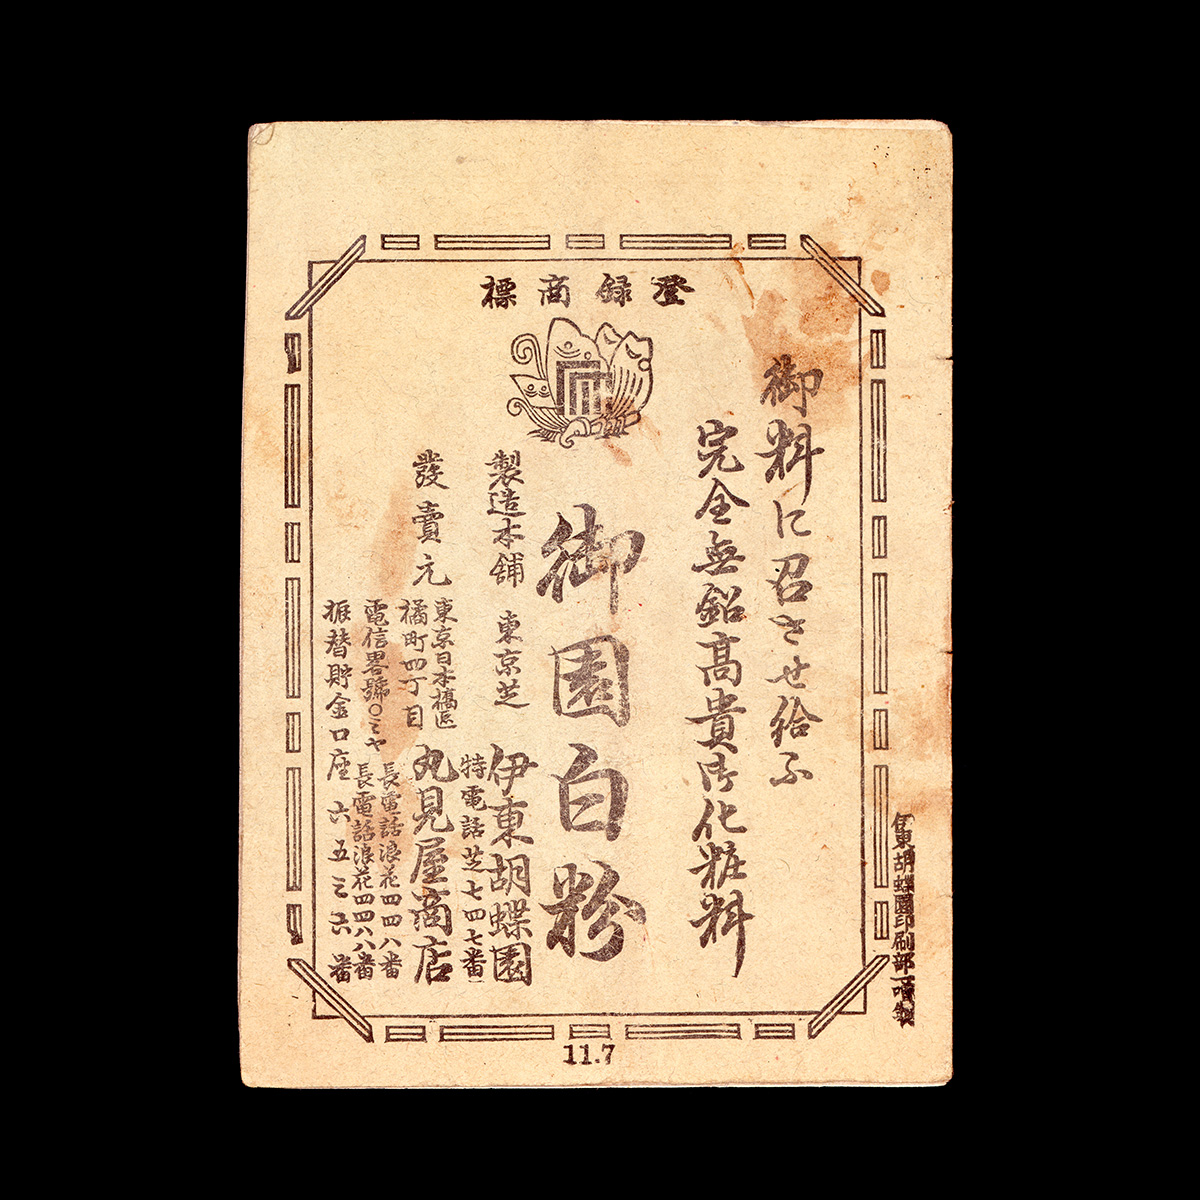 標商録登
御料に召させ給ふ
完全無鉛高貴御化粧料
御園白粉
製造本舗 東京芝 伊東胡蝶園
特電話芝七四七番
發賣元 東京日本橋区
橘町四丁目 丸見屋商店
電信畧號〇ミヤ 長電話浪花四四八番
長電話浪花四四八八番
振替貯金口座 六五三六番
伊東胡蝶園印刷部
11.7